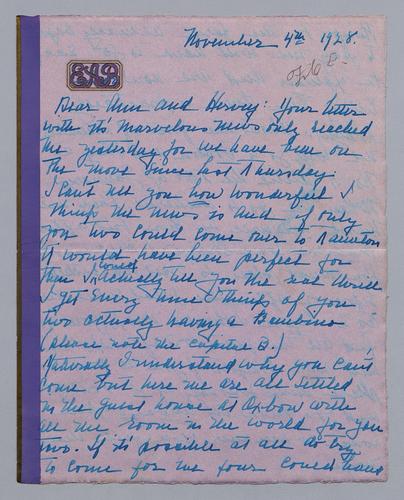 November 4th 1928.
EAB
Dear Ann and Hervey: Your letter
with it's marvelous news only reached
me yesterday for we have been on
the move since last Thursday.
I can't tell you how wonderful I
think the news is and if only
you two could come over to
it would have been perfect for
then I could actually tell you the real thrill
I get every time I think of you
two actually having a Bambino
(please note the capital B.)
Naturally I understand why you can't
come but here we are all settled
in the guest house at Oxbow with
all the room in the world for you
two. If it's possible at all do try
to come for we four could have